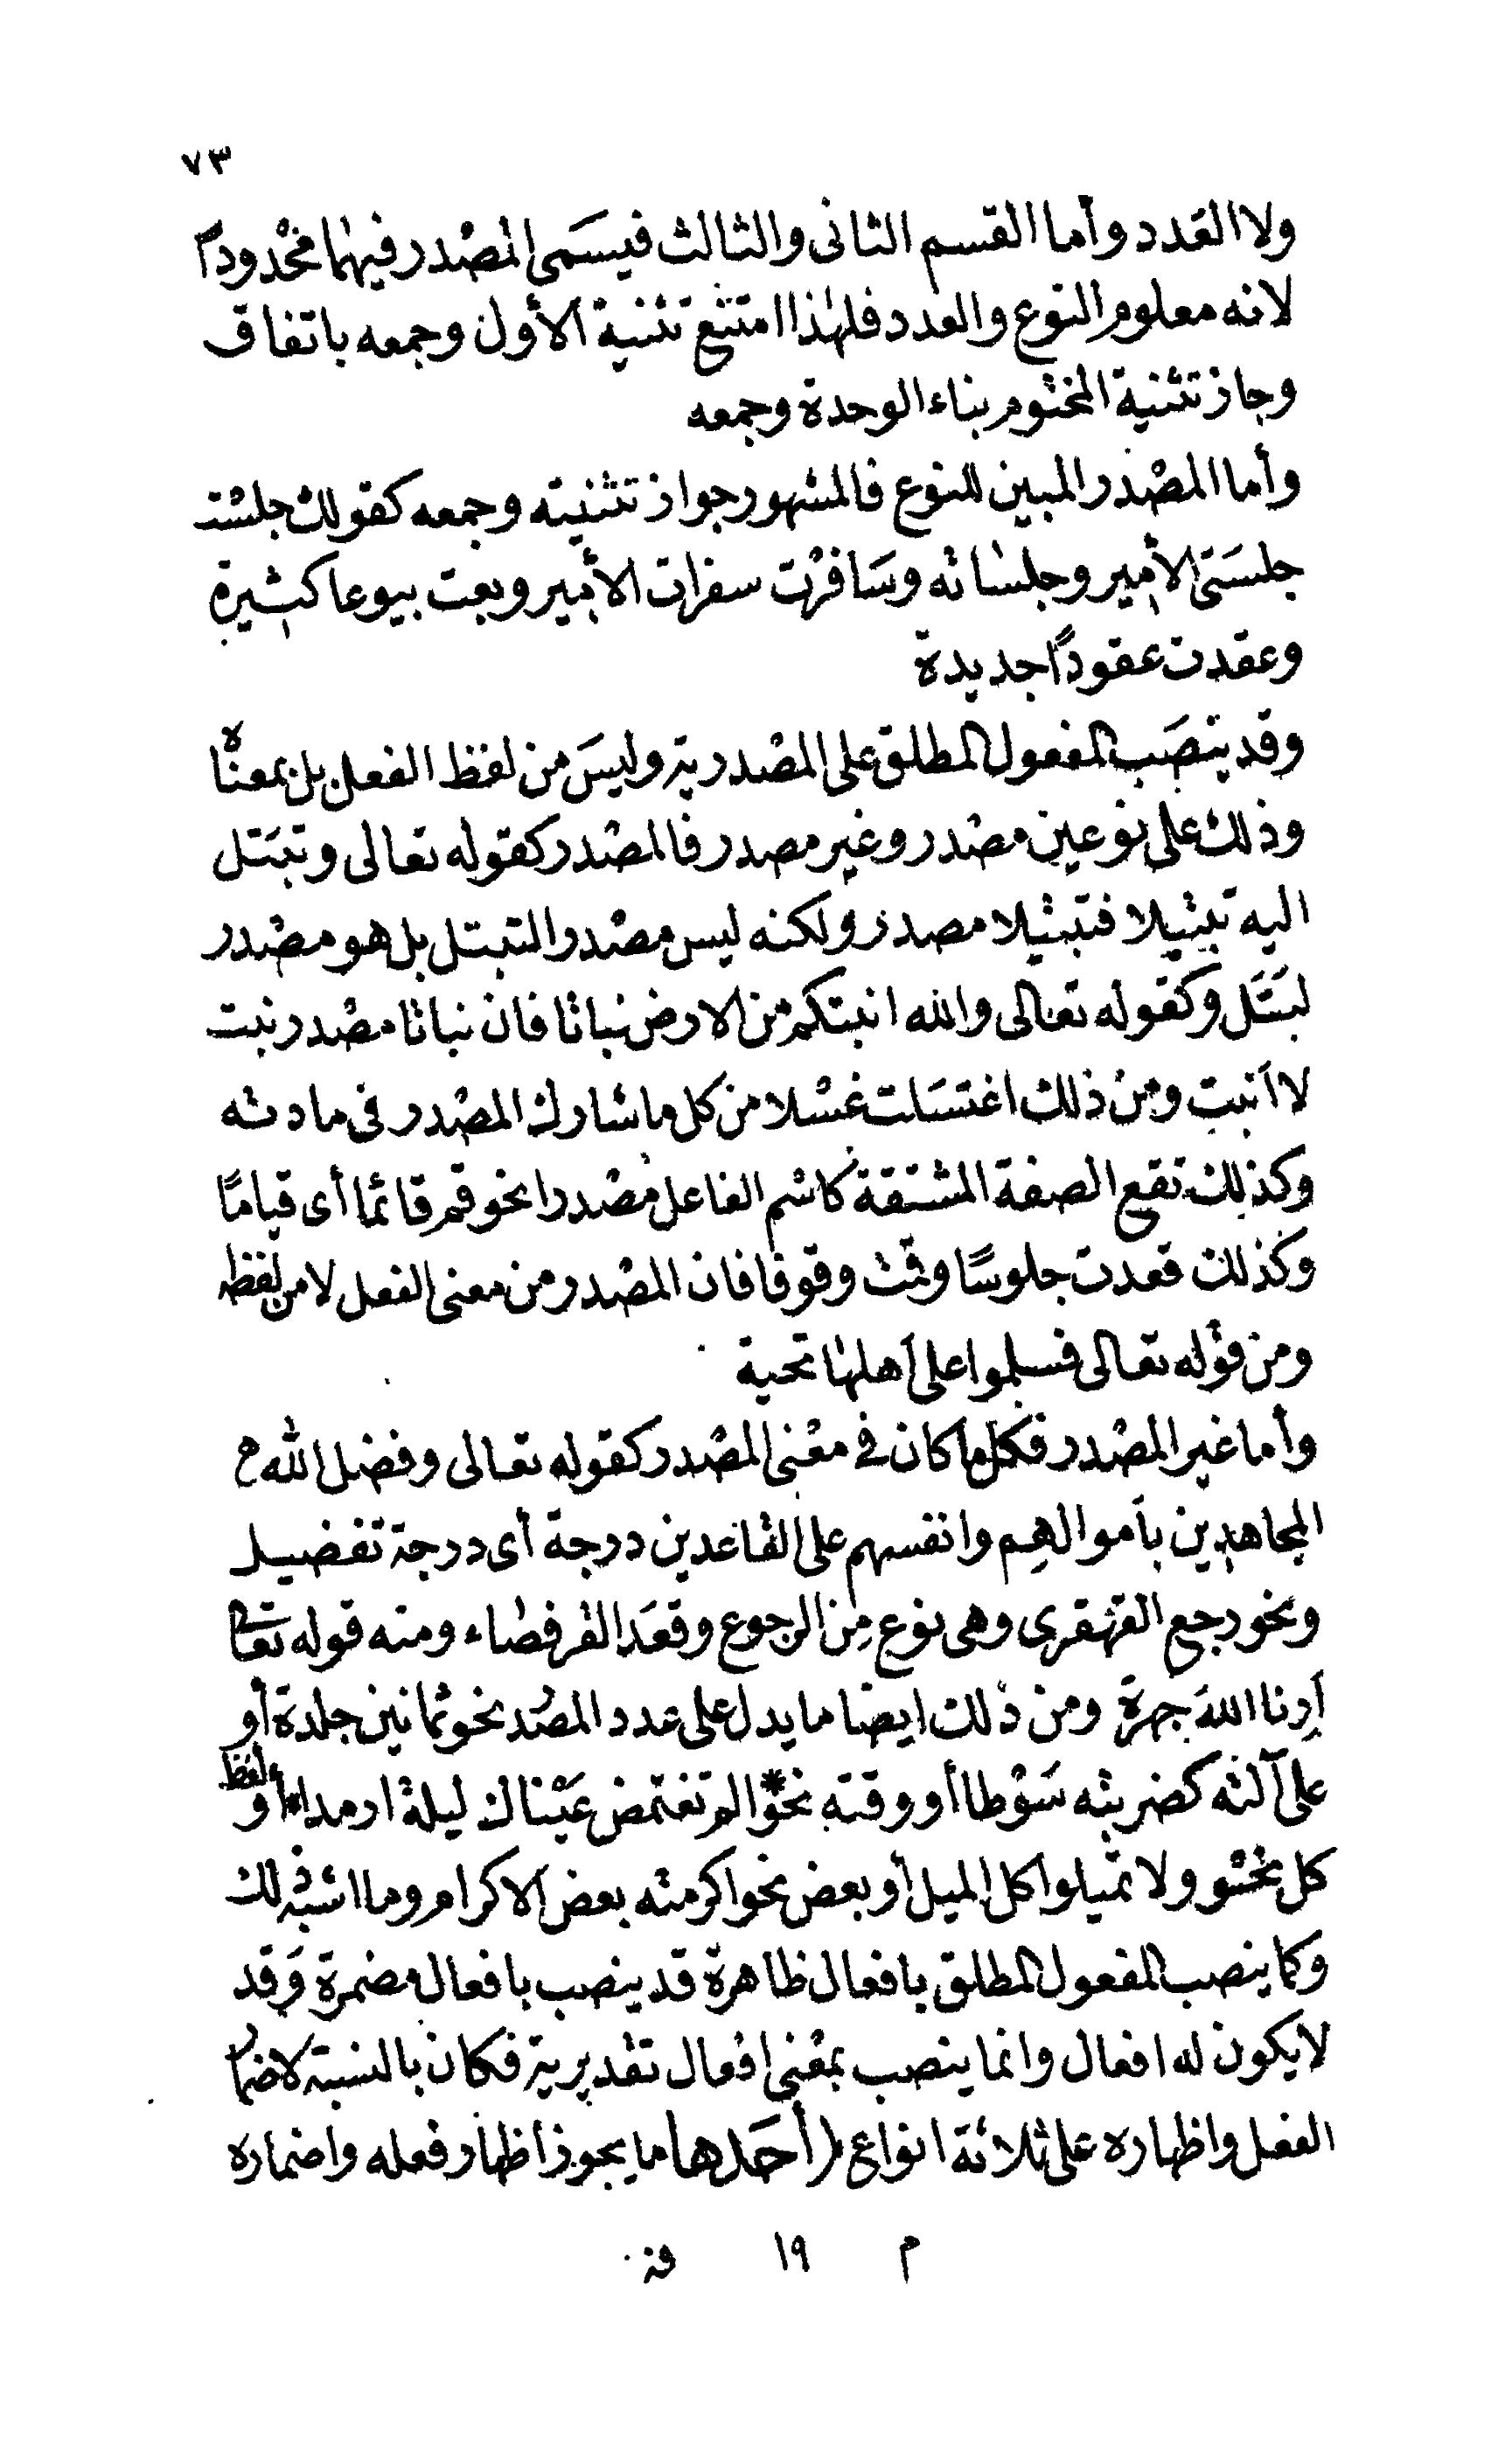 ٧٣
ولا العدد وأما القسم الثانى والثالث فيسمى المصدر فيهما محدودًا
لانه معلوم النوع والعدد فلهذا امتنع تثنية الأول وجمعه باتفاق
وجاز تثنية المختوم بتاء الوحدة وجمعه
وأما المصدر المبين للنوع فالمشهور جواز تثنيته وجمعه كقولك جلست
جلستى الأمير وجلساته وسافرت سفرات الأمير وبعت بيوعا كثيرة
وعقدت عقودًا جديدة
وقد ينصب المفعول المطلق على المصدرية وليس من لفظ الفعل بل بمعناه
وذلك على نوعين مصدر وغير مصدر فالمصدر كقوله تعالى وتبتل
اليه تبتيلا فتبتيلا مصدر ولكنه ليس مصدر التبتل بل هو مصدر
لبتل وكقوله تعالى والله انبتكم من الارض نباتا فان نباتا مصدر نبت
لا أنبت ومن ذلك اغتسلت غسلا من كل ما شارك المصدر فى مادته
وكذلك تقع الصفة المشتقة كاسم الفاعل مصدرا نحو قم قائما أى قيامًا
وكذلك قعدت جلوسًا وقمت وقوفا فان المصدر من معنى الفعل لا من لفظه
ومن قوله تعالى فسلموا على أهلها تحية
وأما غير المصدر فكل ما كان فى معنى المصدر كقوله تعالى وفضل الله
المجاهدين بأموالهم وانفسهم على القاعدين درجة أى درجة تفضيل
ونحو رجع القهقرى وهى نوع من الرجوع وقعد القرفصاء ومنه قوله تعالى
أرنا الله جهرة ومن ذلك ايضا ما يدل على عدد المصدر نحو ثمانين جلدة أو
على آلته كضربته سوطا أو وقته نحو *الم تغتمض عيناك ليلة ارمدا* أو لفظ
كل نحو ولا تميلوا كل الميل أو بعض نحو اكرمته بعض الاكرام وما اشبه ذلك
وكما ينصب المفعول المطلق بافعال ظاهرة قد ينصب بافعال مضمرة وقد
لا يكون له افعال وانما ينصب بمعنى افعال تقديرية فكان بالنسبة لاضمار
الفعل واظهاره على ثلاثة انواع (أحدها ما يجوز اظهار فعله واضماره
م ١٩ فنـ